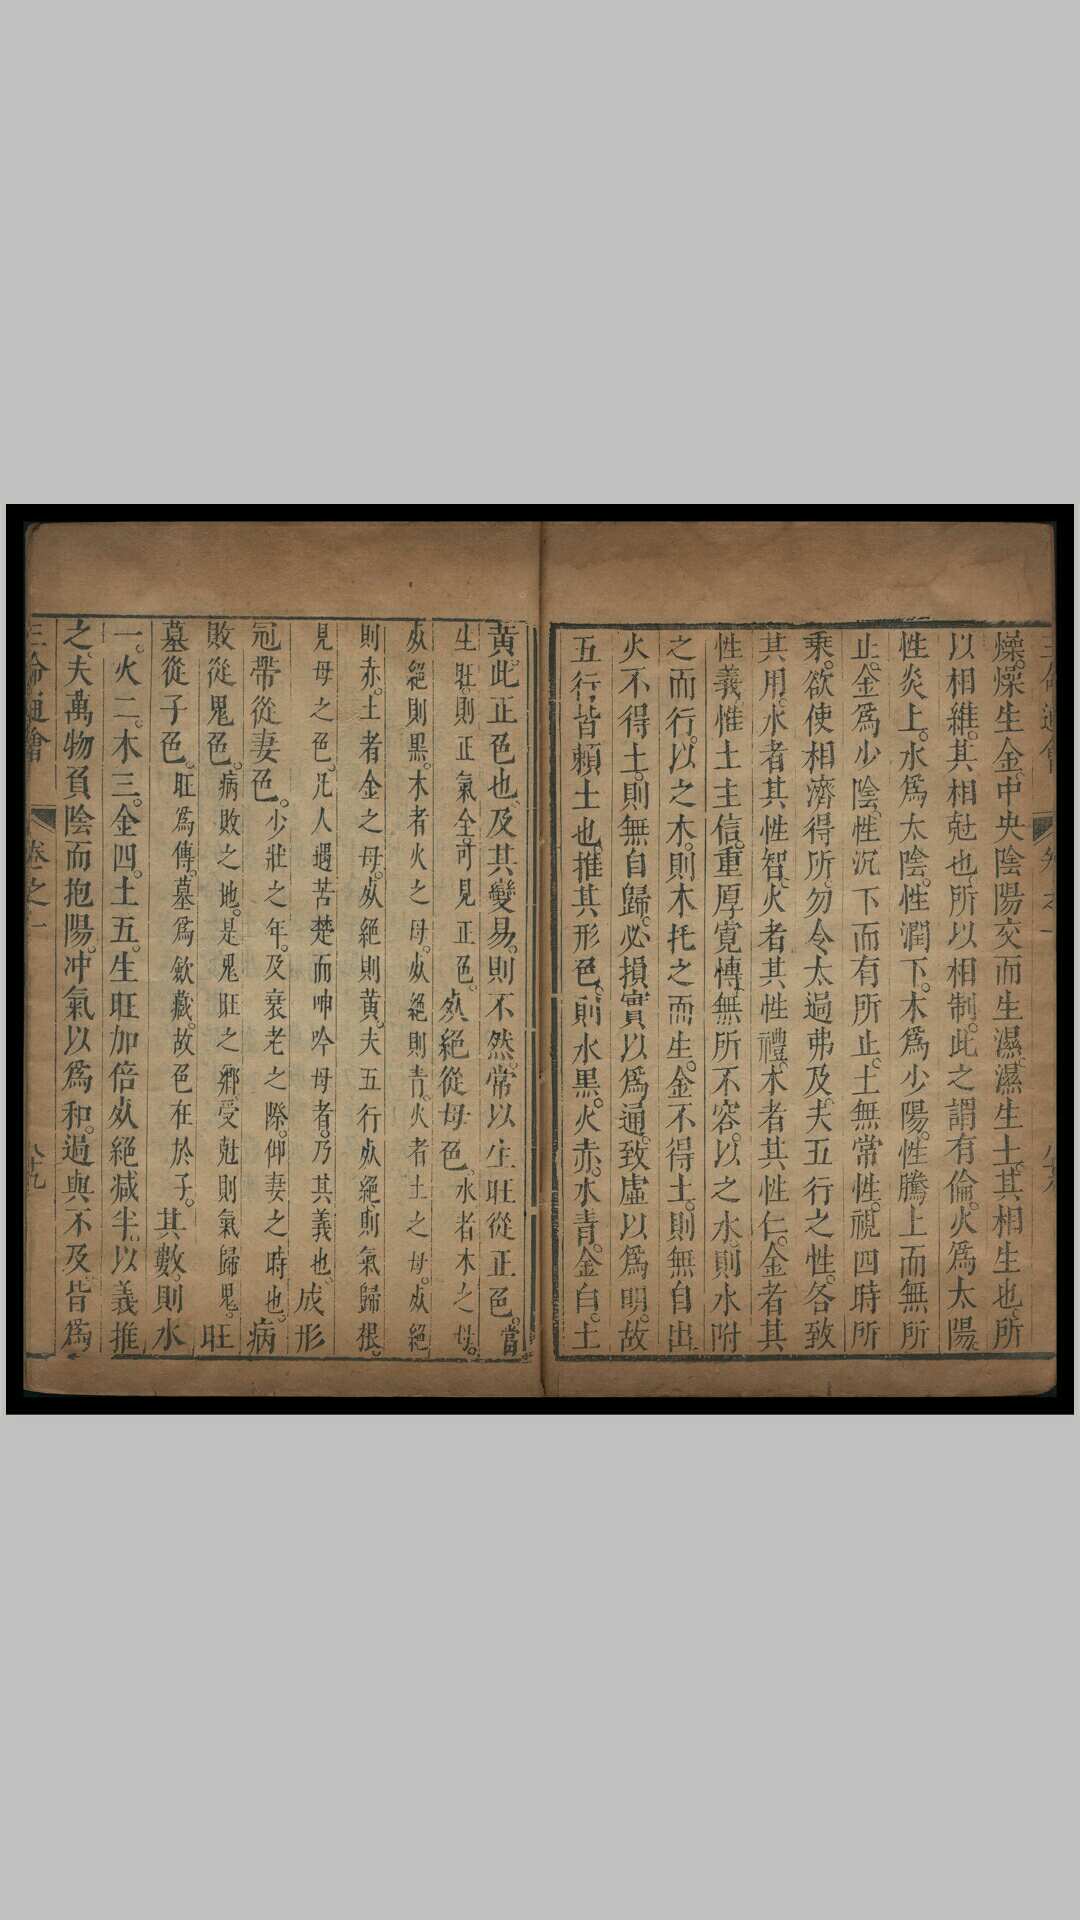 燥。燥生金。中央陰陽交而生濕。濕生土。其相生也。所
以相維。其相尅也。所以相制。此之謂有倫。火為太陽。
性炎上。水為太陰。性潤下。木為少陽。性騰上而無所
止。金為少陰。性沉下而有所止。土無常性。視四時所
乘。欲使相濟得所。勿令太過弗及。夫五行之性。各致
其用。水者其性智。火者其性禮。木者其性仁。金者其
性義。惟土主信。重厚寬慱。無所不容。以之水。則水附
之而行。以之木。則木托之而生。金不得土。則無自出。
火不得土。則無自歸。必損實以為通。致虛以為明。故
五行皆賴土也。推其形色。則水黑。火赤。木青。金白。土
黃。此正色也。及其變易。則不然。常以生旺從正色。當
生旺。則正氣全。可見正色。死絕從母色。水者木之母。
死絕則黑。木者火之母。死絕則青。火者土之母。死絕
則赤。土者金之母。死絕則黄。夫五行死絕。則氣歸根。
見母之色。凡人遇苦楚而呻吟母者。乃其義也。成形
冠帶從妻色。少壯之年。及衰老之際。仰妻之時也。病
敗從鬼色。病敗之地。是鬼旺之鄉。受尅則氣歸鬼。旺
墓從子色。旺為傳。墓為斂藏。故色在於子。其數。則水
一。火二。木三。金四。土五。生旺加倍。死絕減半。以義推
之。夫萬物負陰而抱陽。冲氣以為和。過與不及。皆為
三命通會 卷之一